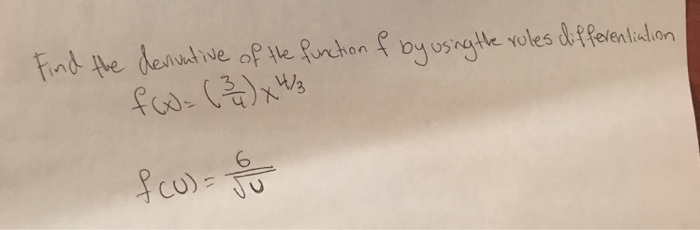 Find the derivative of the function f by using the rules differentiation
f(x) = (3/4) x^4/3
f(u) = 6/√u